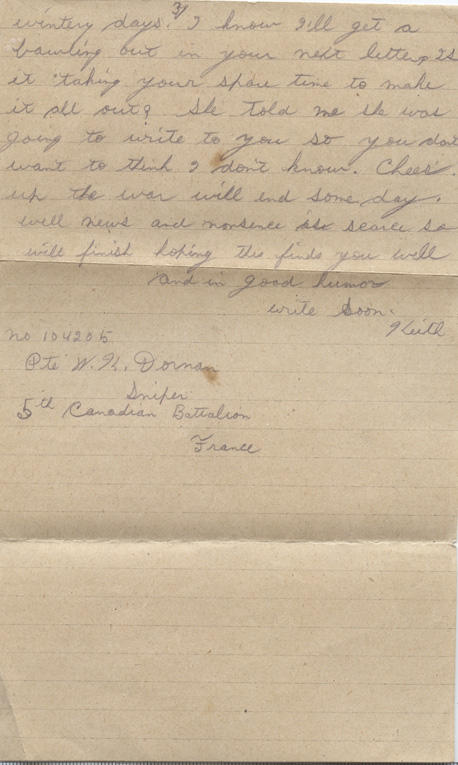 3/
wintery days. I know I'll get a
bawling out in your next letter. Is
it taking your spare time to make
it all out? She told me she was
going to write to you so you dont
want to think I don't know. Cheer
up the war will end some day.
well news and nonsence is scarce so
will finish hoping this finds you well
and in good humor
write Soon.
Keith
no 104205
Pte W. K. Dornan
Sniper
5th Canadian Battalion
France